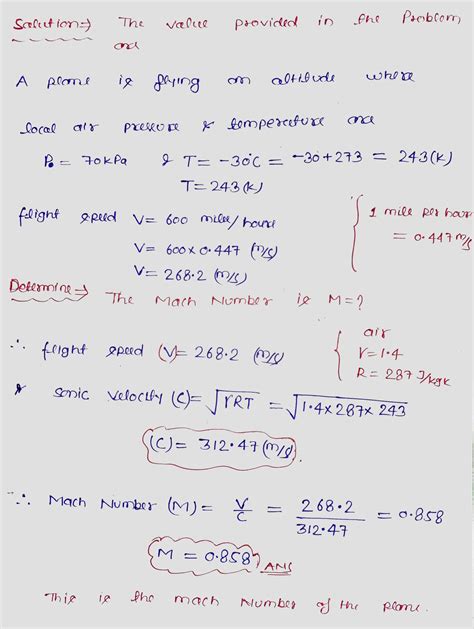 Solution=> The value provided in the Problem
are
A plane is flying an altitude where
local air pressure & temperature are
P₀ = 70kPa & T = -30°C = -30+273 = 243(K)
T = 243(K)
flight speed V = 600 miles/hours
V = 600×0.447 (m/s)
V = 268.2 (m/s)
{ 1 mile per hour
= 0.447 m/s
Determine=> The Mach Number is M=?
∴ flight speed (V) = 268.2 (m/s)
{ air
γ = 1.4
R = 287 J/kgK
& Sonic Velocity (C) = √γRT = √1.4×287×243
(C) = 312.47 (m/s)
∴ Mach Number (M) = V/C = 268.2/312.47 = 0.858
M = 0.858 ANS
This is the mach Number of the plane.